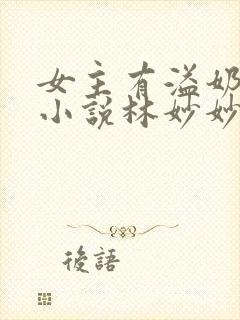 女主有溢奶
小説林妙妙
後語